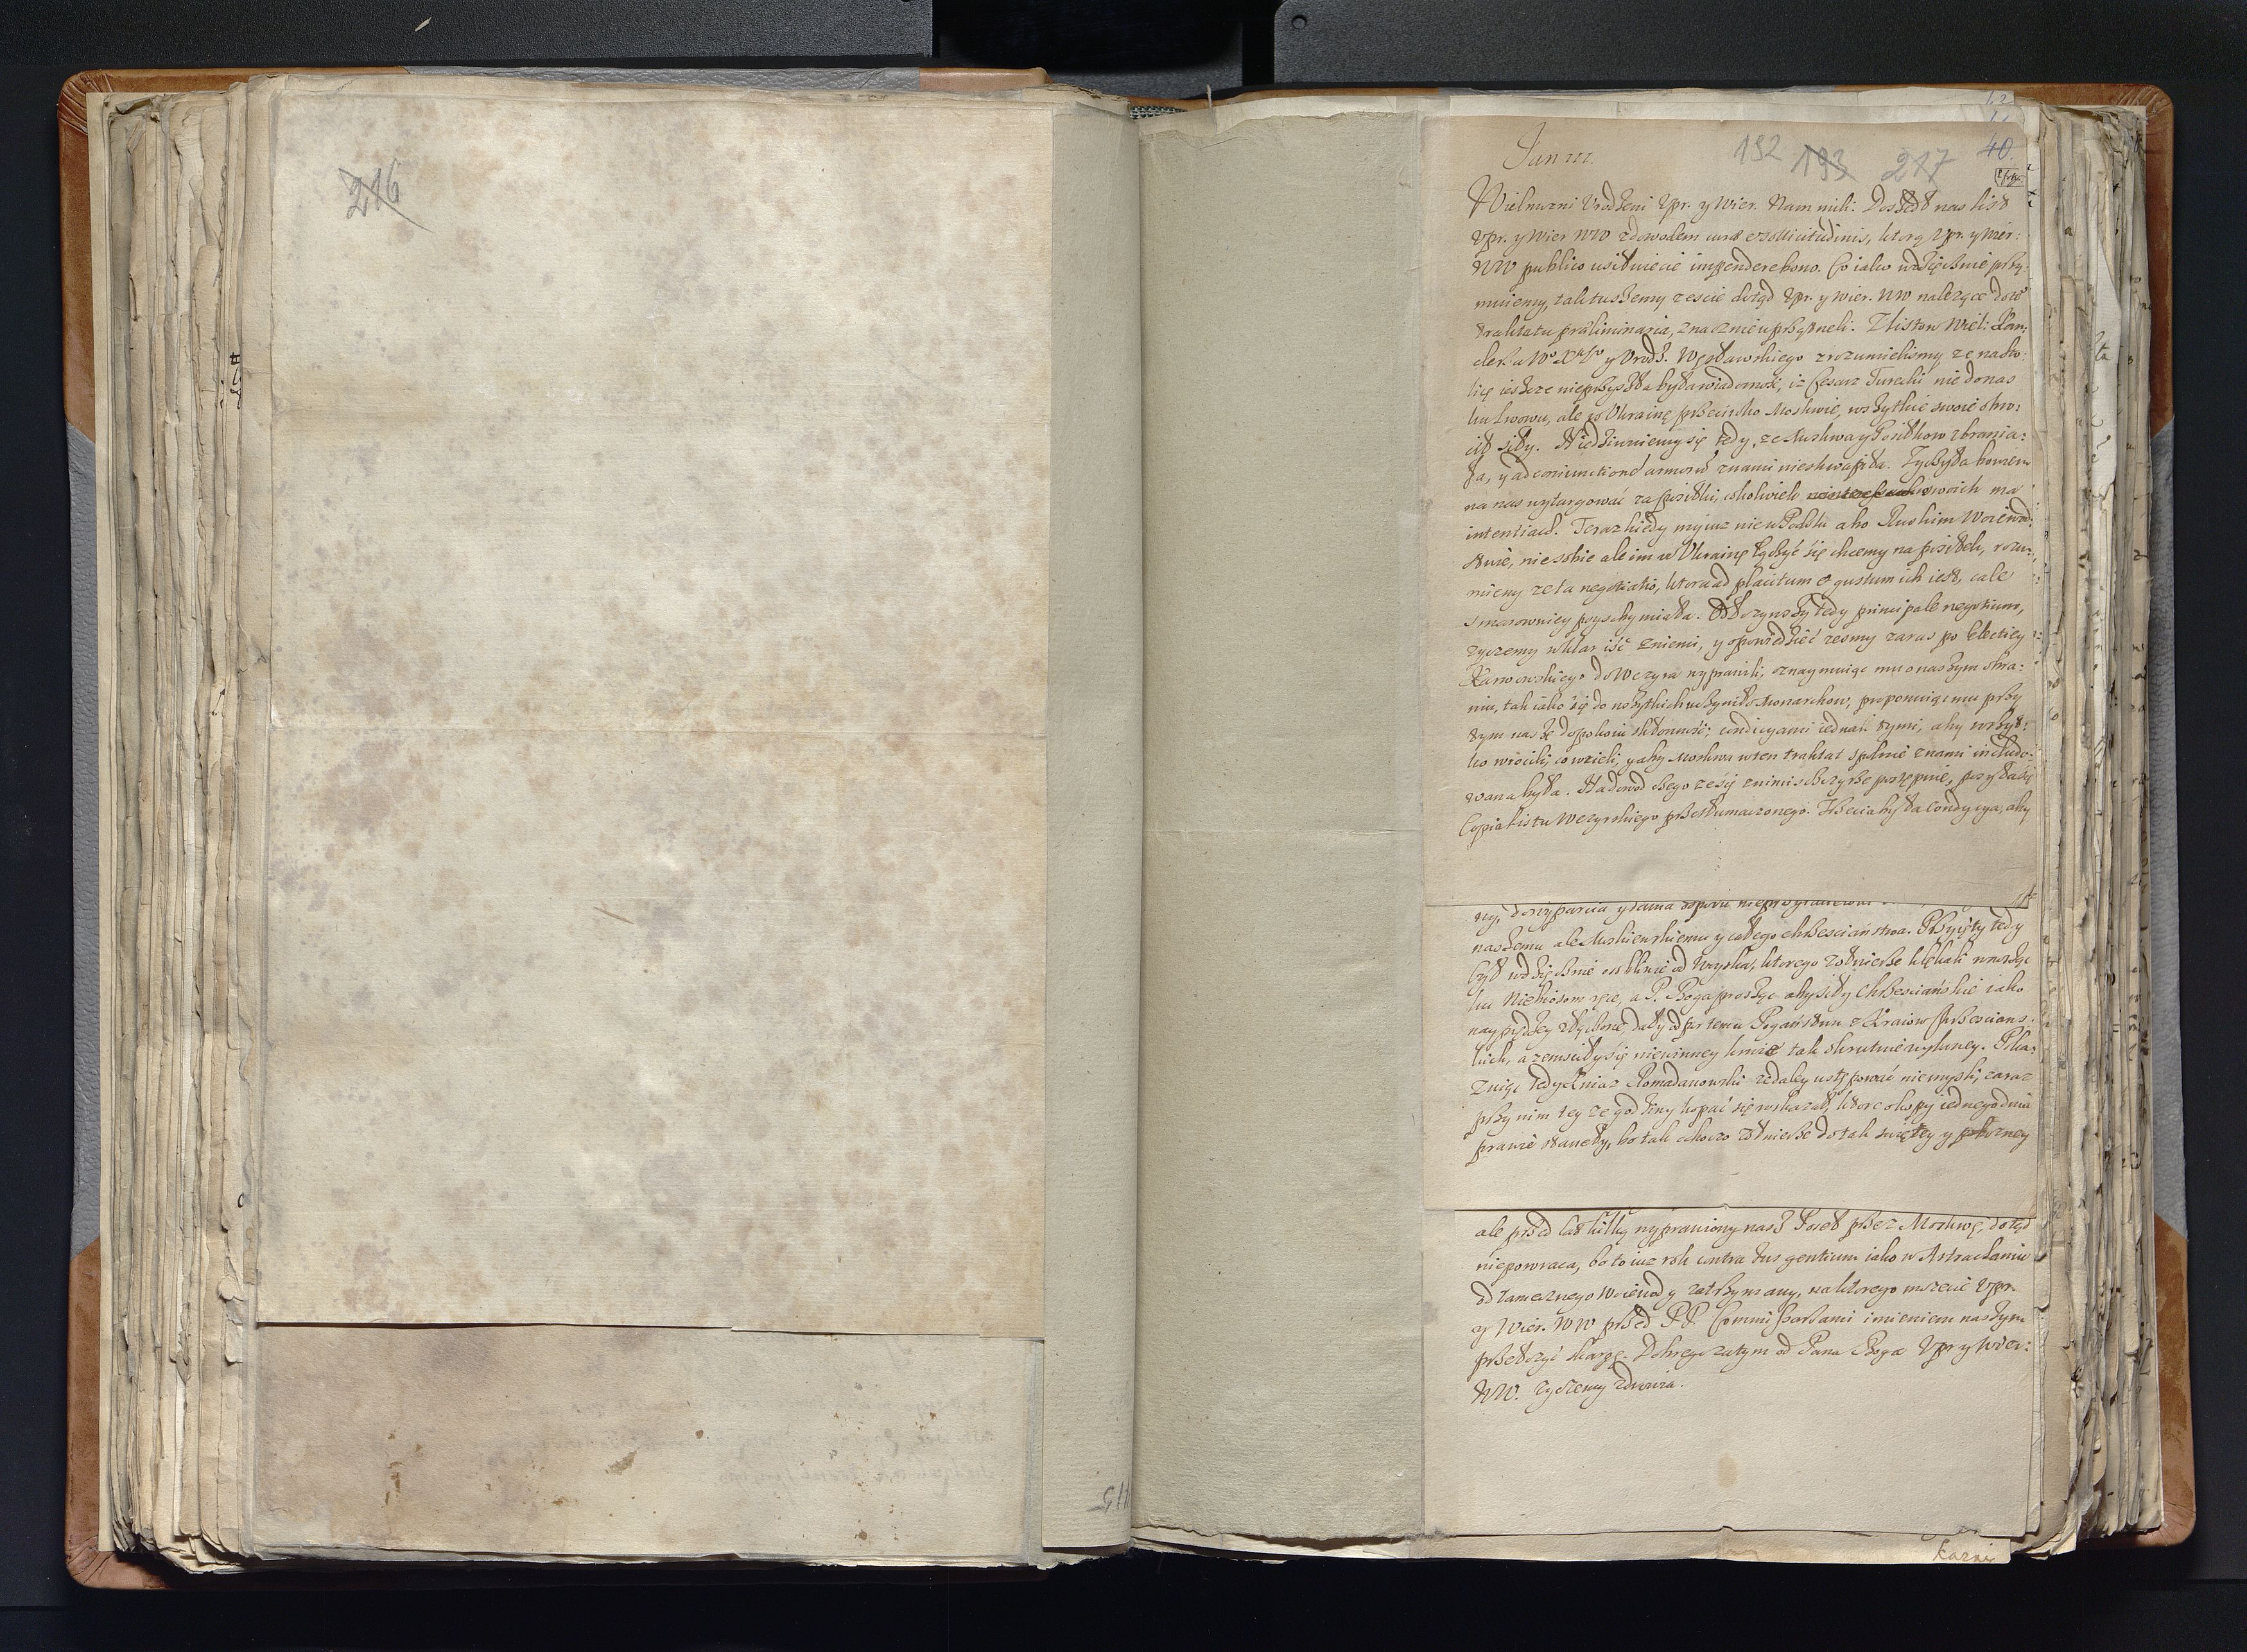 216
Jan III.
192 193 217 40.
Wielmozni Vrodzeni Vpr. y Wier. Nam mili. Doszedł nas list
Vpr. y Wier WW z dowodem curæ et sollicitudinis, ktorą Vpr. y Wier:
WW publico usiłuiecie impendere bono. Co iako wdzięcznie przy
muiemy, tak tuszemy ze scie dotąd Vpr. y Wier. WW nalezące do to
traktatu præliminaria, znacznie uprzątneli. Z listow Wiel: Kan,
clerza Wo Xa Lo y Vrodz. zrozumielismy ze na sto:
licę ieszcze nieprzyszła była wiadomość, iz Cesarz Turecki nie do nas
ku Lwowu, ale w Ukrainę przeciwko Moskwie, wszytkie swoie obro:
cił siły. Niedziwuiemy się tedy, ze Moskwa y Posiłkow zbrania:
ła, y ad coniunctionem armorum z nami nieskwapiła. Życzyła bowiem
na nas wytargować za posiłki, cokolwiek swoich ma
intentiach. Teraz kiedy my iuz nie w Polsku abo Ruskim Woiewod:
stwie, nie sobie ale im w Ukrainę łączyć się chcemy na posiłek, rozu:
miemy ze ta negotiatio, ktora ad placitum et gustum ich iest, cale
smarowniey poyschy miała. tedy principale negotium,
zyczemy w klar iść z niemi, y opowiedzieć zesmy zaras po Electiey
Karwowskiego do Wezyra wyprawili, oznaymuiąc mu o naszym obra:
niu, tak iako się do wszytkich uczyniło Monarchow, proponuiąc mu przy
tym nasze do pokoiu skłonność; condicyami iednak tymi, aby wszyt:
ko wrocili, co wzieli, y aby Moskwa w ten traktat społnie z nami includo:
wana była. Na dowod czego ze się z nimi szczyrze postępuie, posyła się
Copia listu Wezyrskiego przetłumaczonego. Trzecia była condycya, aby
naszemu ale Moskiewskiemu y całego chrzescianstwa. Przyięty tedy
był wdzięcznie osobliwie od Woyska, ktorego zołnierze klękali wnosząc
ku Niebiosom ręce, a P. Boga prosząc aby siły Chrzescianskie iako
nayprędzey złączone, dały odpor temu Poganstwu z Kraiow Chrzescians.
kich, a zemsciły się niewinney krwie tak okrutnie wylaney. Poka:
zuiąc tedy Kniaz Romadanowski ze daley ustępować niemysli, zaraz
przy nim tey ze godziny kopać się roskazał, ktore okopy iednego dnia
prawie staneły, bo tak ochoczo zołnierze do tak swiętey y pobozney
ale przed lat kilką wyprawiony nasz Poseł przez Moskwę, dotąd
niepowraca, bo to iuz rok contra Ius gentium iako w Astrachaniu
od tamecznego Woiewody zatrzymany, na ktorego mozecie Vpr.
y Wier. WW przed PP Commissarzami imieniem naszym
przełozyć skargę. Dobrego zatym od Pana Boga Vpr y Wier:
WW. zyczemy zdrowia.
kazni